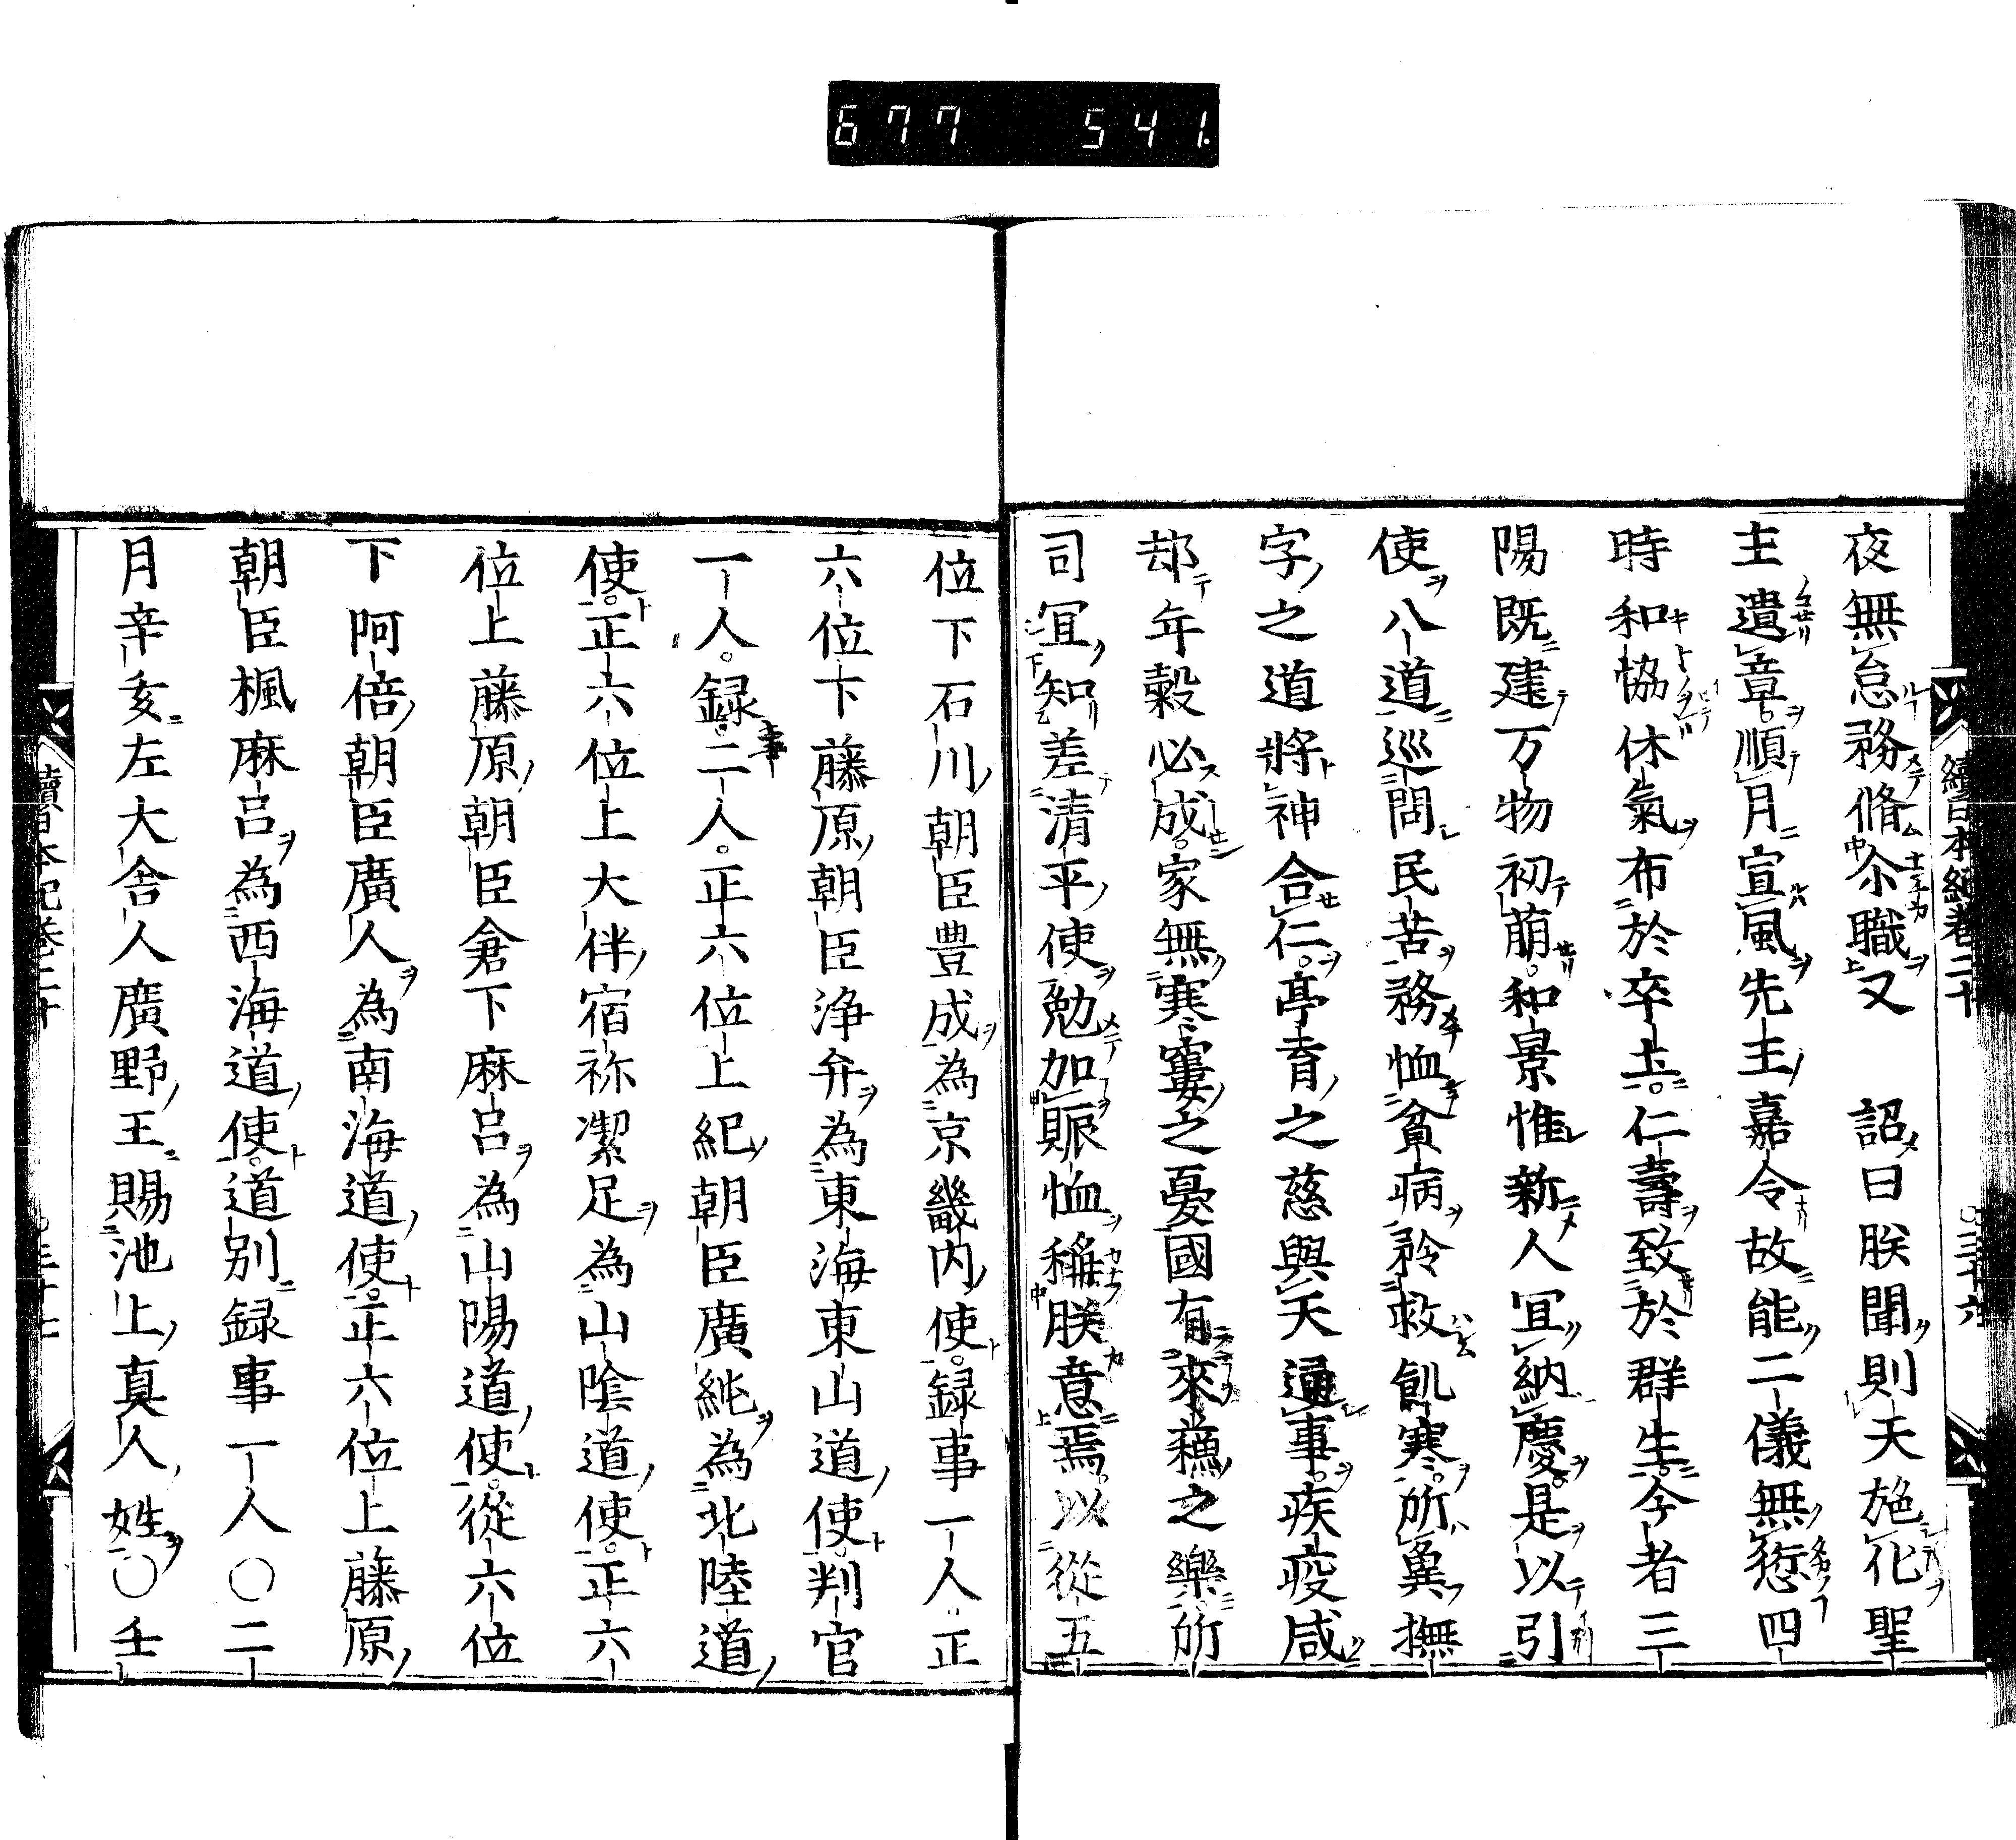 677 541.
續日本紀巻二十
○三十六
夜無怠務脩尒職又 詔曰朕聞則天施化聖
主遺章順月宣風先王嘉令故能二儀無愆四
時和協休氣布於卒土仁壽致於群生今者三
陽既建万物初萠和景惟新人冝納慶是以引
使八道巡問民苦務恤貧病矜救飢寒所冀撫
字之道將神合仁亭育之慈與天通事疾疫咸
却年穀必成家無寒窶之憂國有來穮之樂所
司冝知差清平使勉加賑恤稱朕意焉以從五
位下石川朝臣豊成為京畿内使録事一人正
六位下藤原朝臣浄弁為東海東山道使判官
一人録事二人正六位上紀朝臣廣純為北陸道
使正六位上大伴宿祢潔足為山陰道使正六
位上藤原朝臣倉下麻呂為山陽道使從六位
下阿倍朝臣廣人為南海道使正六位上藤原
朝臣楓麻呂為西海道使道別録事一人○二
月辛亥左大舎人廣野王賜池上真人姓○壬
續日本紀巻二十
○三十七